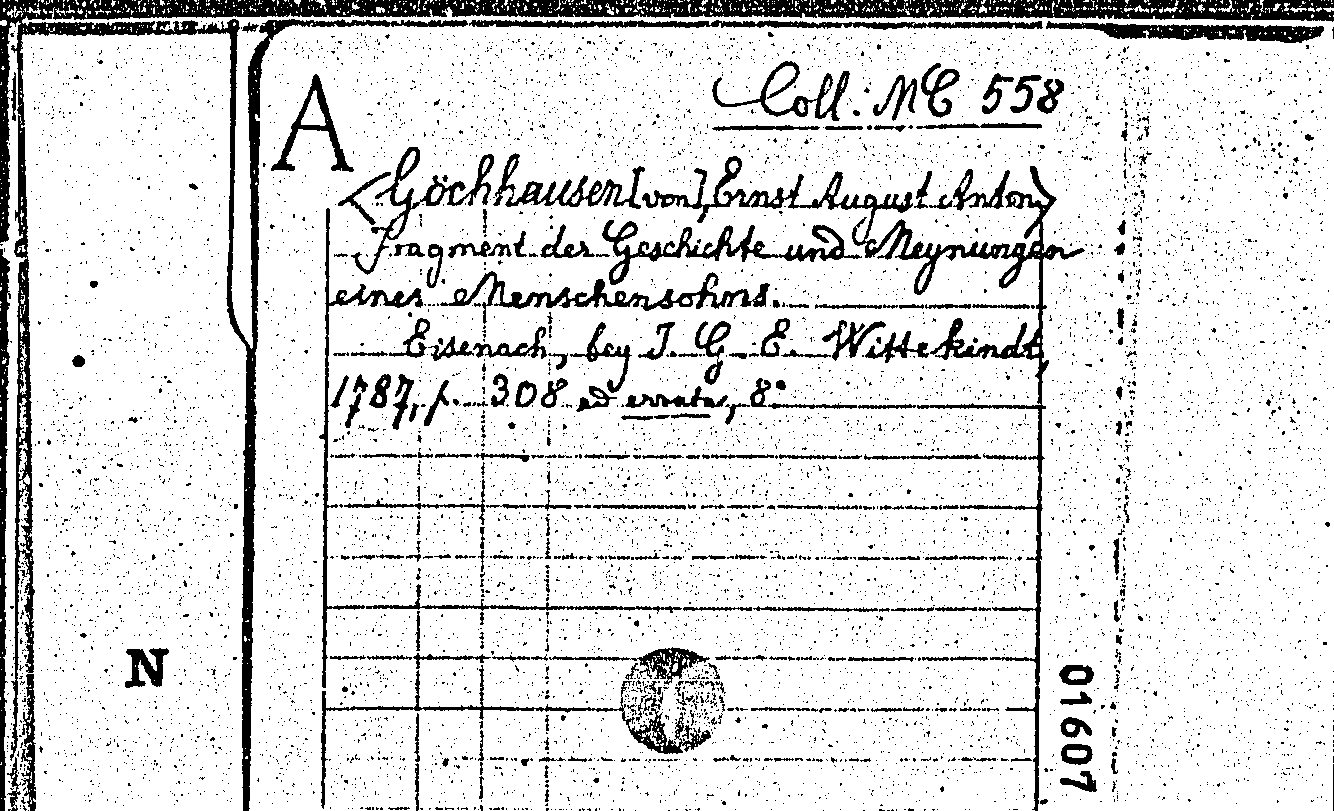 A
Coll. MC 558
<Göchhausen [von], Ernst August Anton>
Fragment der Geschichte und Meynungen
eines Menschensohns.
Eisenach, bey J. G. E. Wittekindt,
1787, p. 308 ed errata, 8°
N
01607